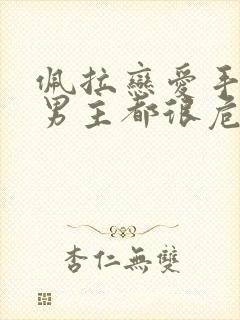 佩拉戀愛手
男主都很危
杏仁無雙